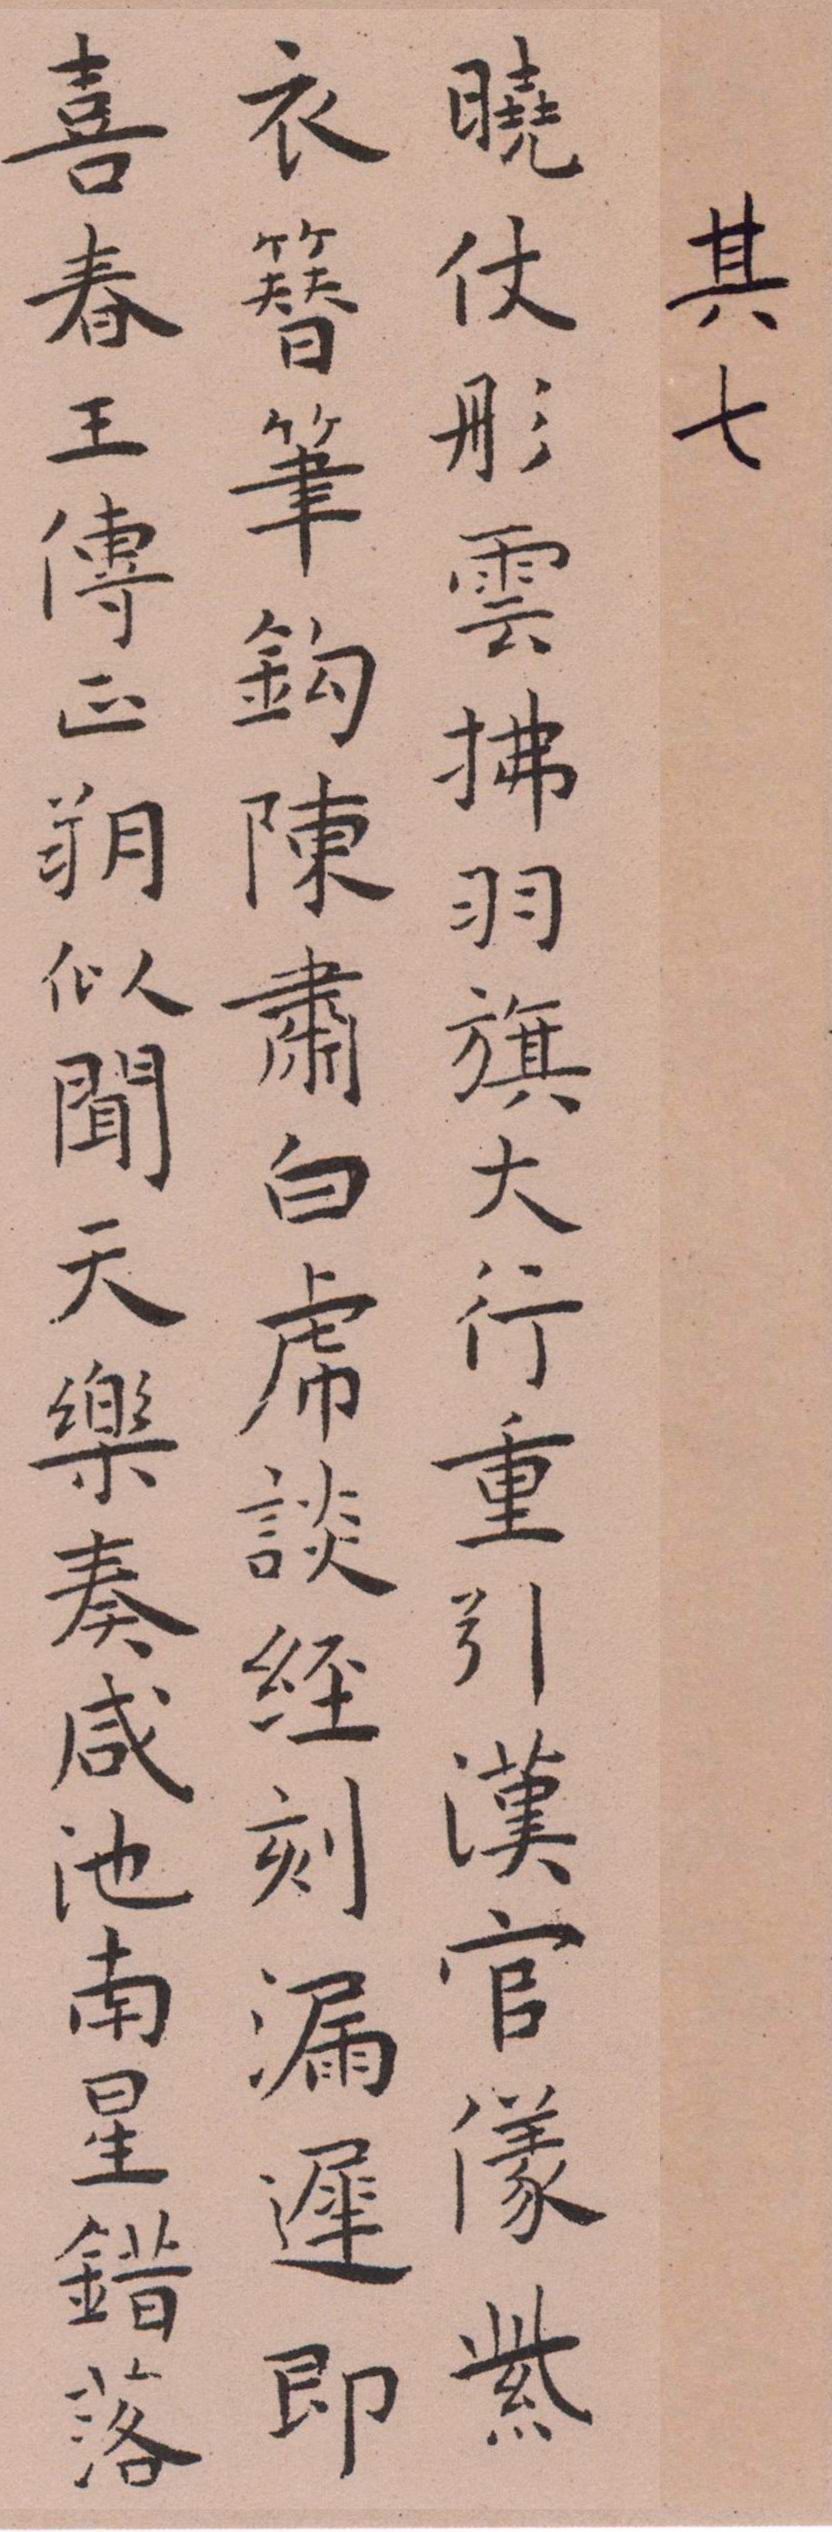 其七
曉仗彤雲拂羽旗大行重引漢官儀紫
衣簪筆鈎陳肅白虎談經刻漏遲即
喜春王傳正朔似聞天樂奏咸池南星錯落